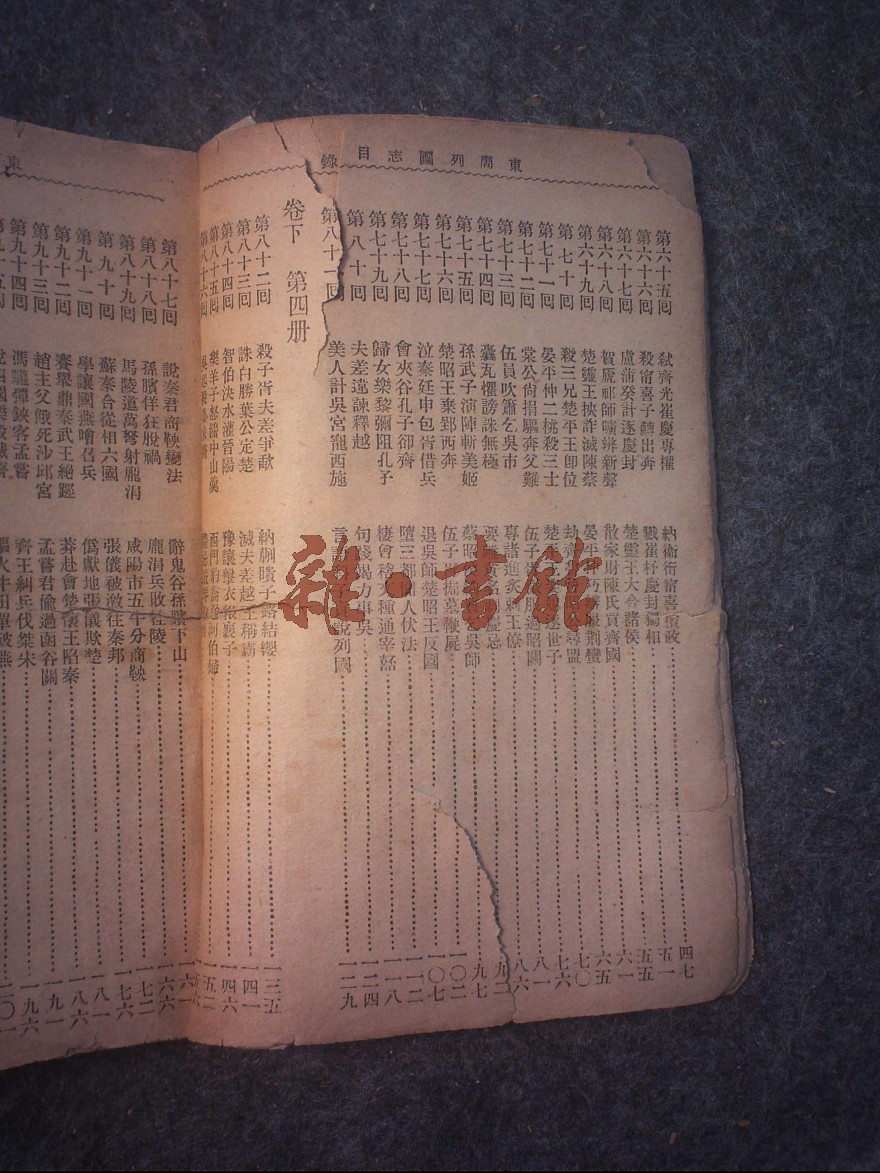 東周列國志目錄
第六十五回 弒齊光崔慶專權 納衛衎甯喜擅政 四七
第六十六回 殺甯喜子鱄出奔 戮崔杼慶封獨相 五一
第六十七回 盧蒲癸計逐慶封 楚靈王大合諸侯 五五
第六十八回 賀虒祁師曠辨新聲 散家財陳氏買齊國 六一
第六十九回 楚靈王挾詐滅陳蔡 晏平 六五
第七十回 殺三兄楚平王即位 劫齊 尋盟 七〇
第七十一回 晏平仲二桃殺三士 楚平王 世子 七六
第七十二回 棠公尚捐軀奔父難 伍子 過昭關 八一
第七十三回 伍員吹簫乞吳市 專諸進炙刺王僚 八六
第七十四回 囊瓦懼謗誅無極 要 忌 九二
第七十五回 孫武子演陣斬美姬 蔡昭 吳師 九七
第七十六回 楚昭王棄郢西奔 伍子 掘墓鞭屍 一〇二
第七十七回 泣秦廷申包胥借兵 退吳師楚昭王反國 一〇七
第七十八回 會夾谷孔子卻齊 墮三都 人伏法 一一二
第七十九回 歸女樂黎彌阻孔子 棲會稽文種通宰嚭 一一八
第八十回 夫差違諫釋越 句踐竭力事吳 一二四
第八十一回 美人計吳宮寵西施 言語 說列國 一二九
卷下 第四册
第八十二回 殺子胥夫差爭歃 納蒯聵子路結纓 一三五
第八十三回 誅白勝葉公定楚 滅夫差越王稱霸 一四一
第八十四回 智伯決水灌晉陽 豫讓擊衣報襄子 一四六
第八十五回 樂羊子怒餟中山羹 西門豹喬 河伯婦
第八十六回
東
第八十七回 說秦君衛鞅變法 辭鬼谷孫臏下山
第八十八回 孫臏佯狂脫禍 龐涓兵敗桂陵
第八十九回 馬陵道萬弩射龐涓 咸陽市五牛分商鞅 一七二
第九十回 蘇秦合從相六國 張儀被激往秦邦 一七六
第九十一回 學讓國燕噲召兵 僞獻地張儀欺楚 一八一
第九十二回 賽舉鼎秦武王絕脛 莽赴會楚懷王陷秦
第九十三回 趙主父餓死沙邱宮 孟嘗君偷過函谷關 一九一
第九十四回 馮驩彈鋏客孟嘗 齊王糾兵伐桀宋 一九六
第九十五回 說四國樂毅滅齊 驅火牛田單破燕 二〇一
雜·書館